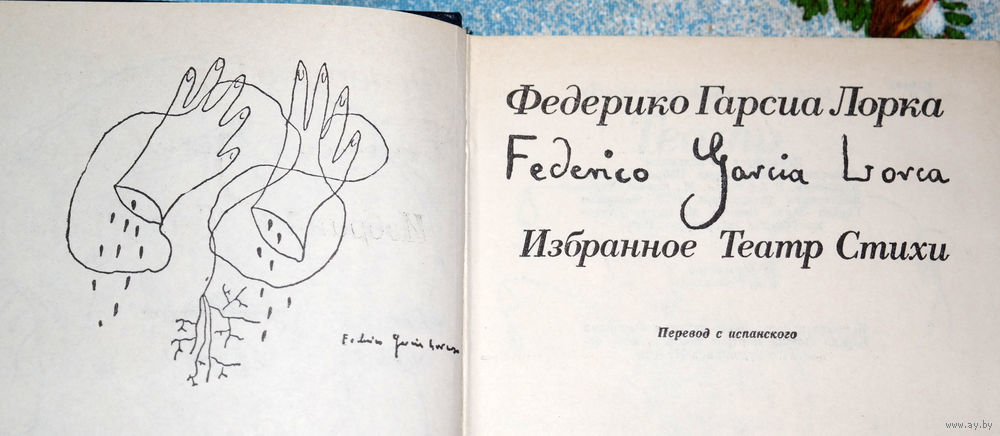 Federico García Lorca
Федерико Гарсиа Лорка
Federico García Lorca
Избранное Театр Стихи
Перевод с испанского
www.ay.by